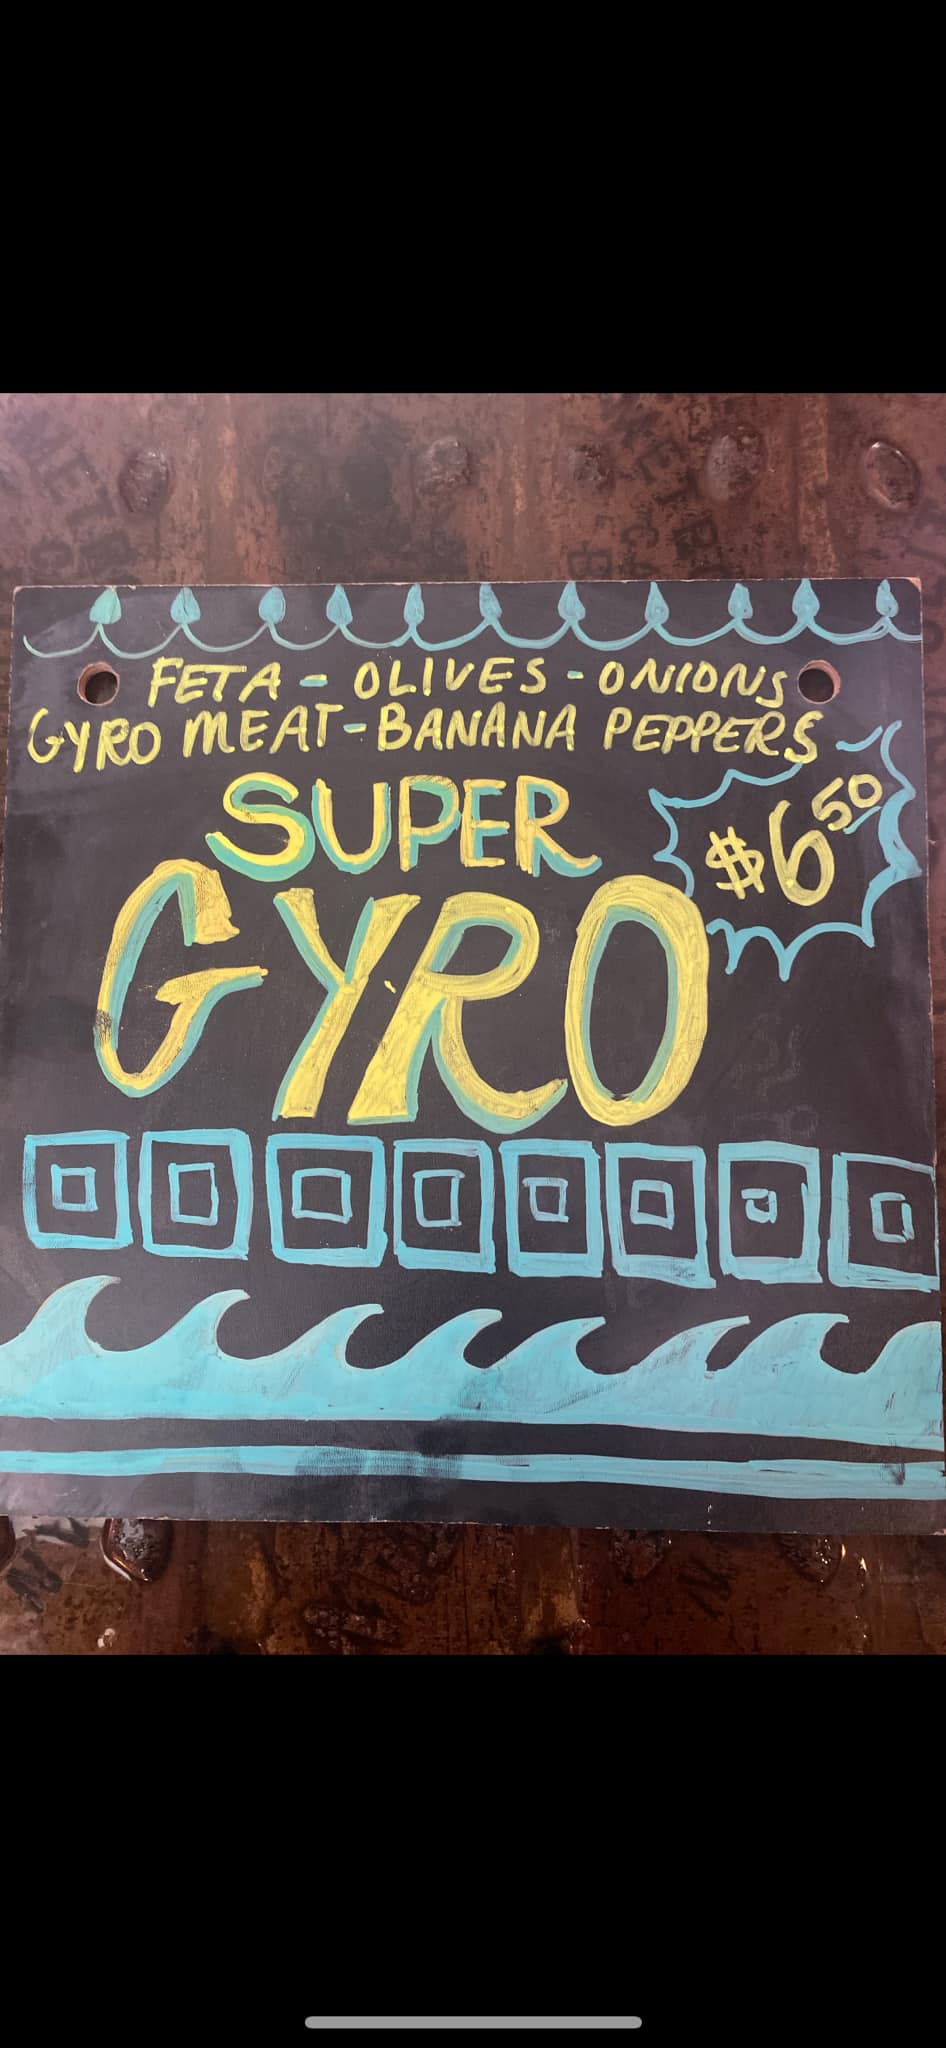 FETA - OLIVES - ONIONS
GYRO MEAT - BANANA PEPPERS
SUPER
$6.50
GYRO